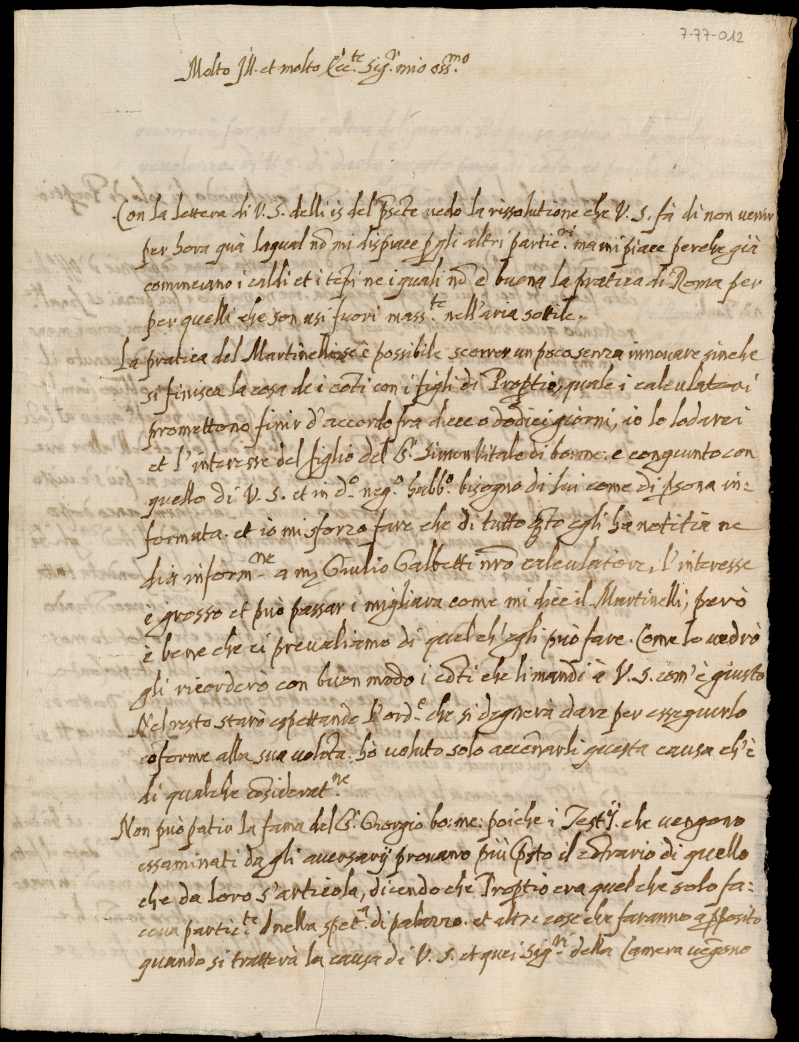 7-77-012
Molto Ill. et molto Ecc.te Sig.r mio oss.mo
Con la lettera di V. S. delli 15 del pñte vedo la rissolutione che V. S. fà di non venir
per hora quà laqual nõ mi dispiace p gli altri partic.ri ma mi piace perche già
cominciano i caldi et i tẽpi ne i quali nõ è buona la pratica di Roma per
per quelli che son usi fuori mass.te nell'aria sottile.
La pratica del Martinelli se è possibile scorrer un poco senza innovare sinche
si finisca la cosa de i cõti con i figli di Propertio, quale i calculatori
promettono finir d'accordo fra diece o dodici giorni, io lo lodarei
et l'interesse del figlio del S.r Simon Vitale di bo: me: è congiunto con
quello di V. S. et in d.o neg.o habb.o bisogno di lui come di psona in=
formata. et io mi sforzo fare che di tutto q̃to egli hà notitia ne
dia inform.ne a m Giulio Galbetti nr̃o calculatore, l'interesse
è grosso et può passar i migliara come mi dice il Martinelli, però
è bene che ci prevaliamo di quel ch'egli può fare. Come lo vedrò
gli ricorderò con buon modo i cõti che li mandi à V. S. com'è giusto
Nel resto starò espettando l'ord.e che si degnerà dare per esseguirlo
cõforme alla sua volõtà. hò voluto solo accennarli questa causa ch'è
di qualche cõsiderat.ne
Non può patir la fama del S.r Giorgio bo: me: poiche i Testij. che vengono
essaminati da gli aversarij provano più psto il cõtrario di quello
che da loro s'articola, dicendo che Propertio era quel che solo fa=
ceva partic.te nella spet.a di palazzo. et altre cose che faranno a pposito
quando si tratterà la causa di V. S. et quei Sig.ri della Camera vẽgono